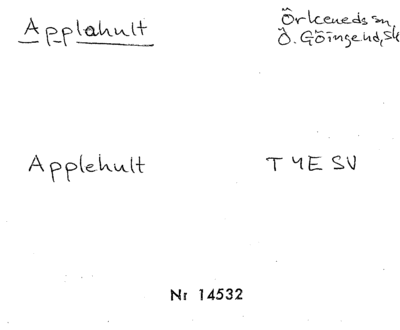 Applahult
Örkeneds sn,
Ö. Göingehd, Sk
Applehult
T 4E SV
Nr 14532